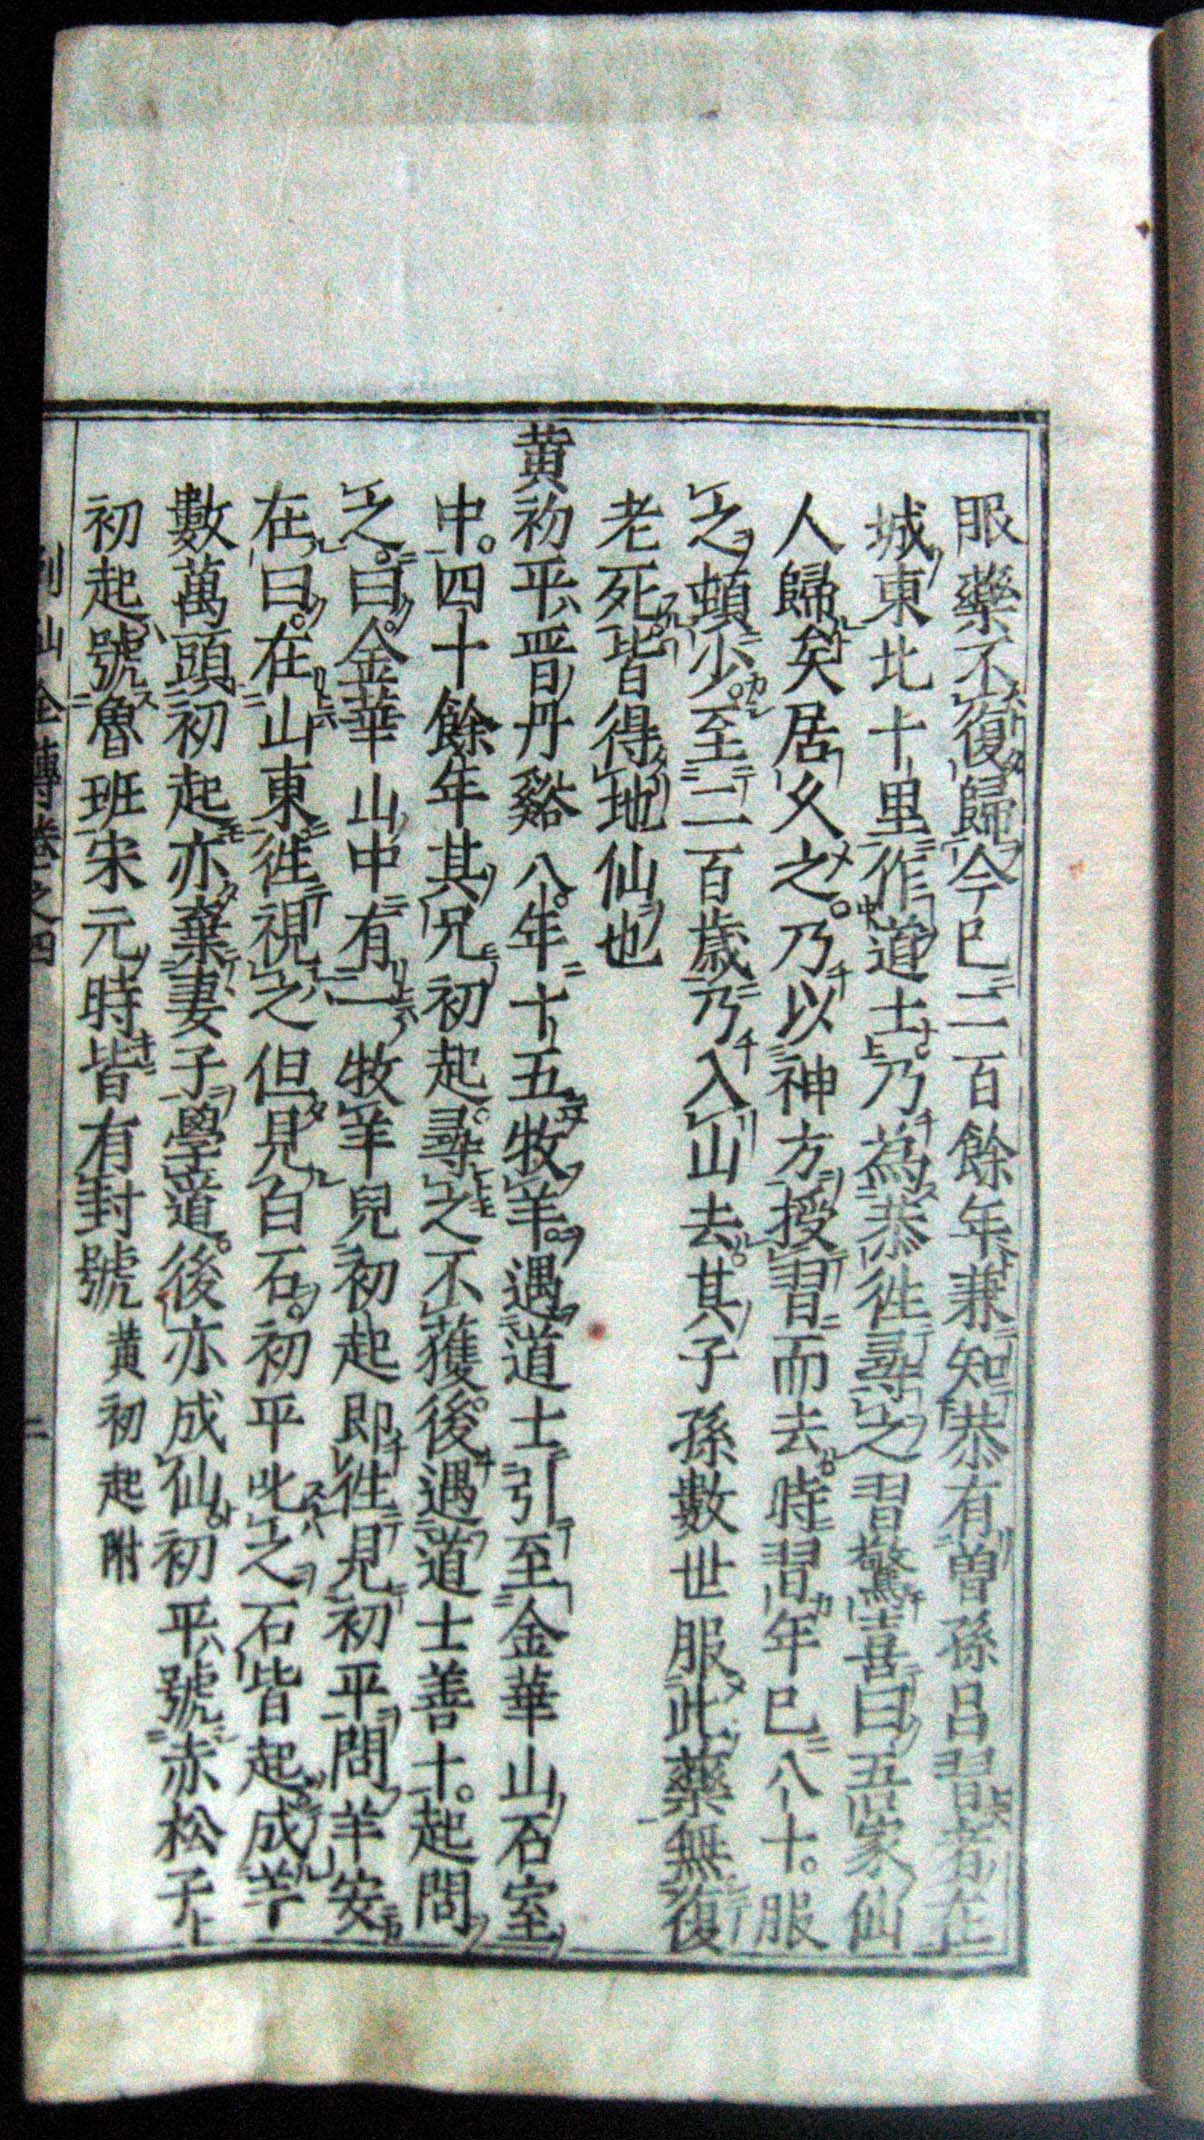 服藥不復歸今已二百餘年兼知恭有曽孫呂習者在
城東北十里作道士乃為恭徃尋之習驚喜曰吾家仙
人歸矣居久之乃以神方授習而去時習年已八十服
之頓少至二百歳乃入山去其子孫數世服此藥無復
老死皆得地仙也
黄初平晋丹谿人年十五牧羊遇道士引至金華山石室
中四十餘年其兄初起尋之不獲後遇道士善卜起問
之曰金華山中有一牧羊兒初起即徃見初平問羊安
在曰在山東徃視之但見白石初平叱之石皆起成羊
數萬頭初起亦棄妻子學道後亦成仙初平號赤松子
初起號魯班宋元時皆有封號 黄初起附
列仙全傳卷之四 二